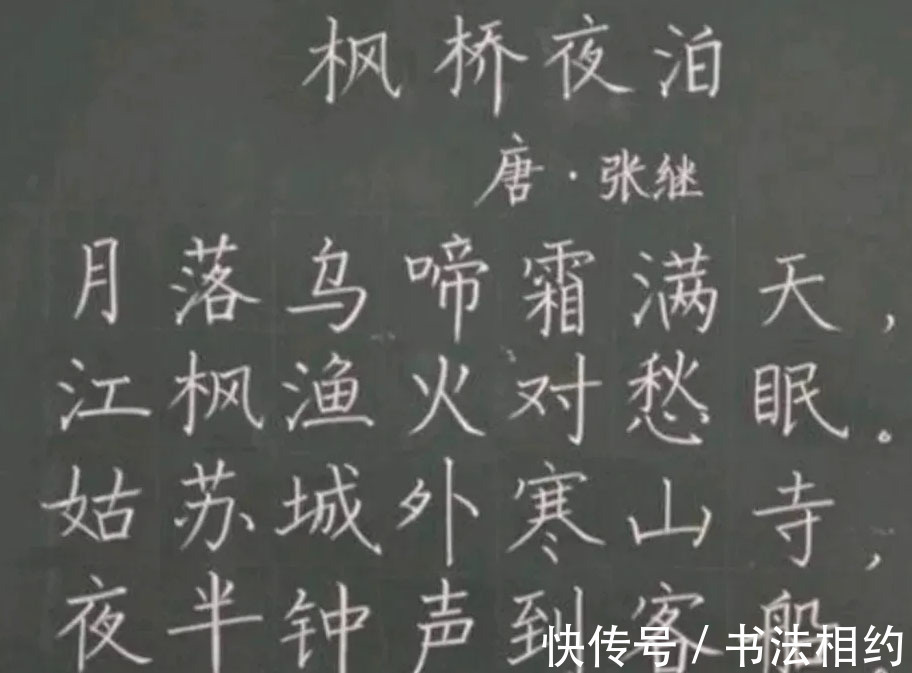 枫桥夜泊
唐·张继
月落乌啼霜满天，
江枫渔火对愁眠。
姑苏城外寒山寺，
夜半钟声到客船
快传号 / 书法相约